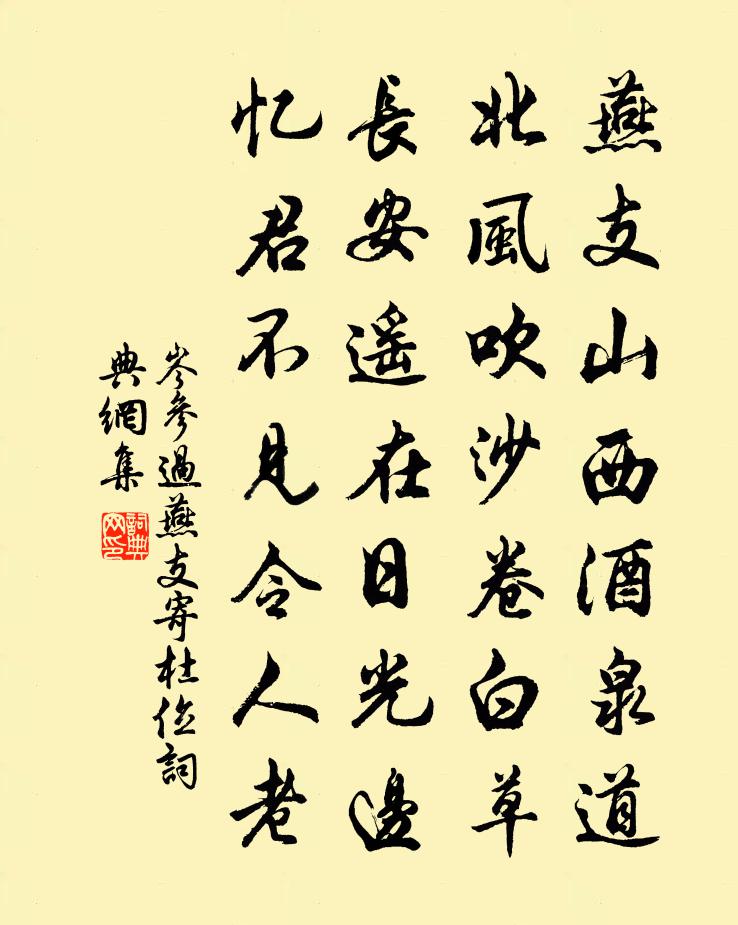 燕支山西酒泉道
北風吹沙卷白草
長安遥在日光邊
忆君不見令人老
岑參過燕支寄杜位詞
典網集
詞典
网印